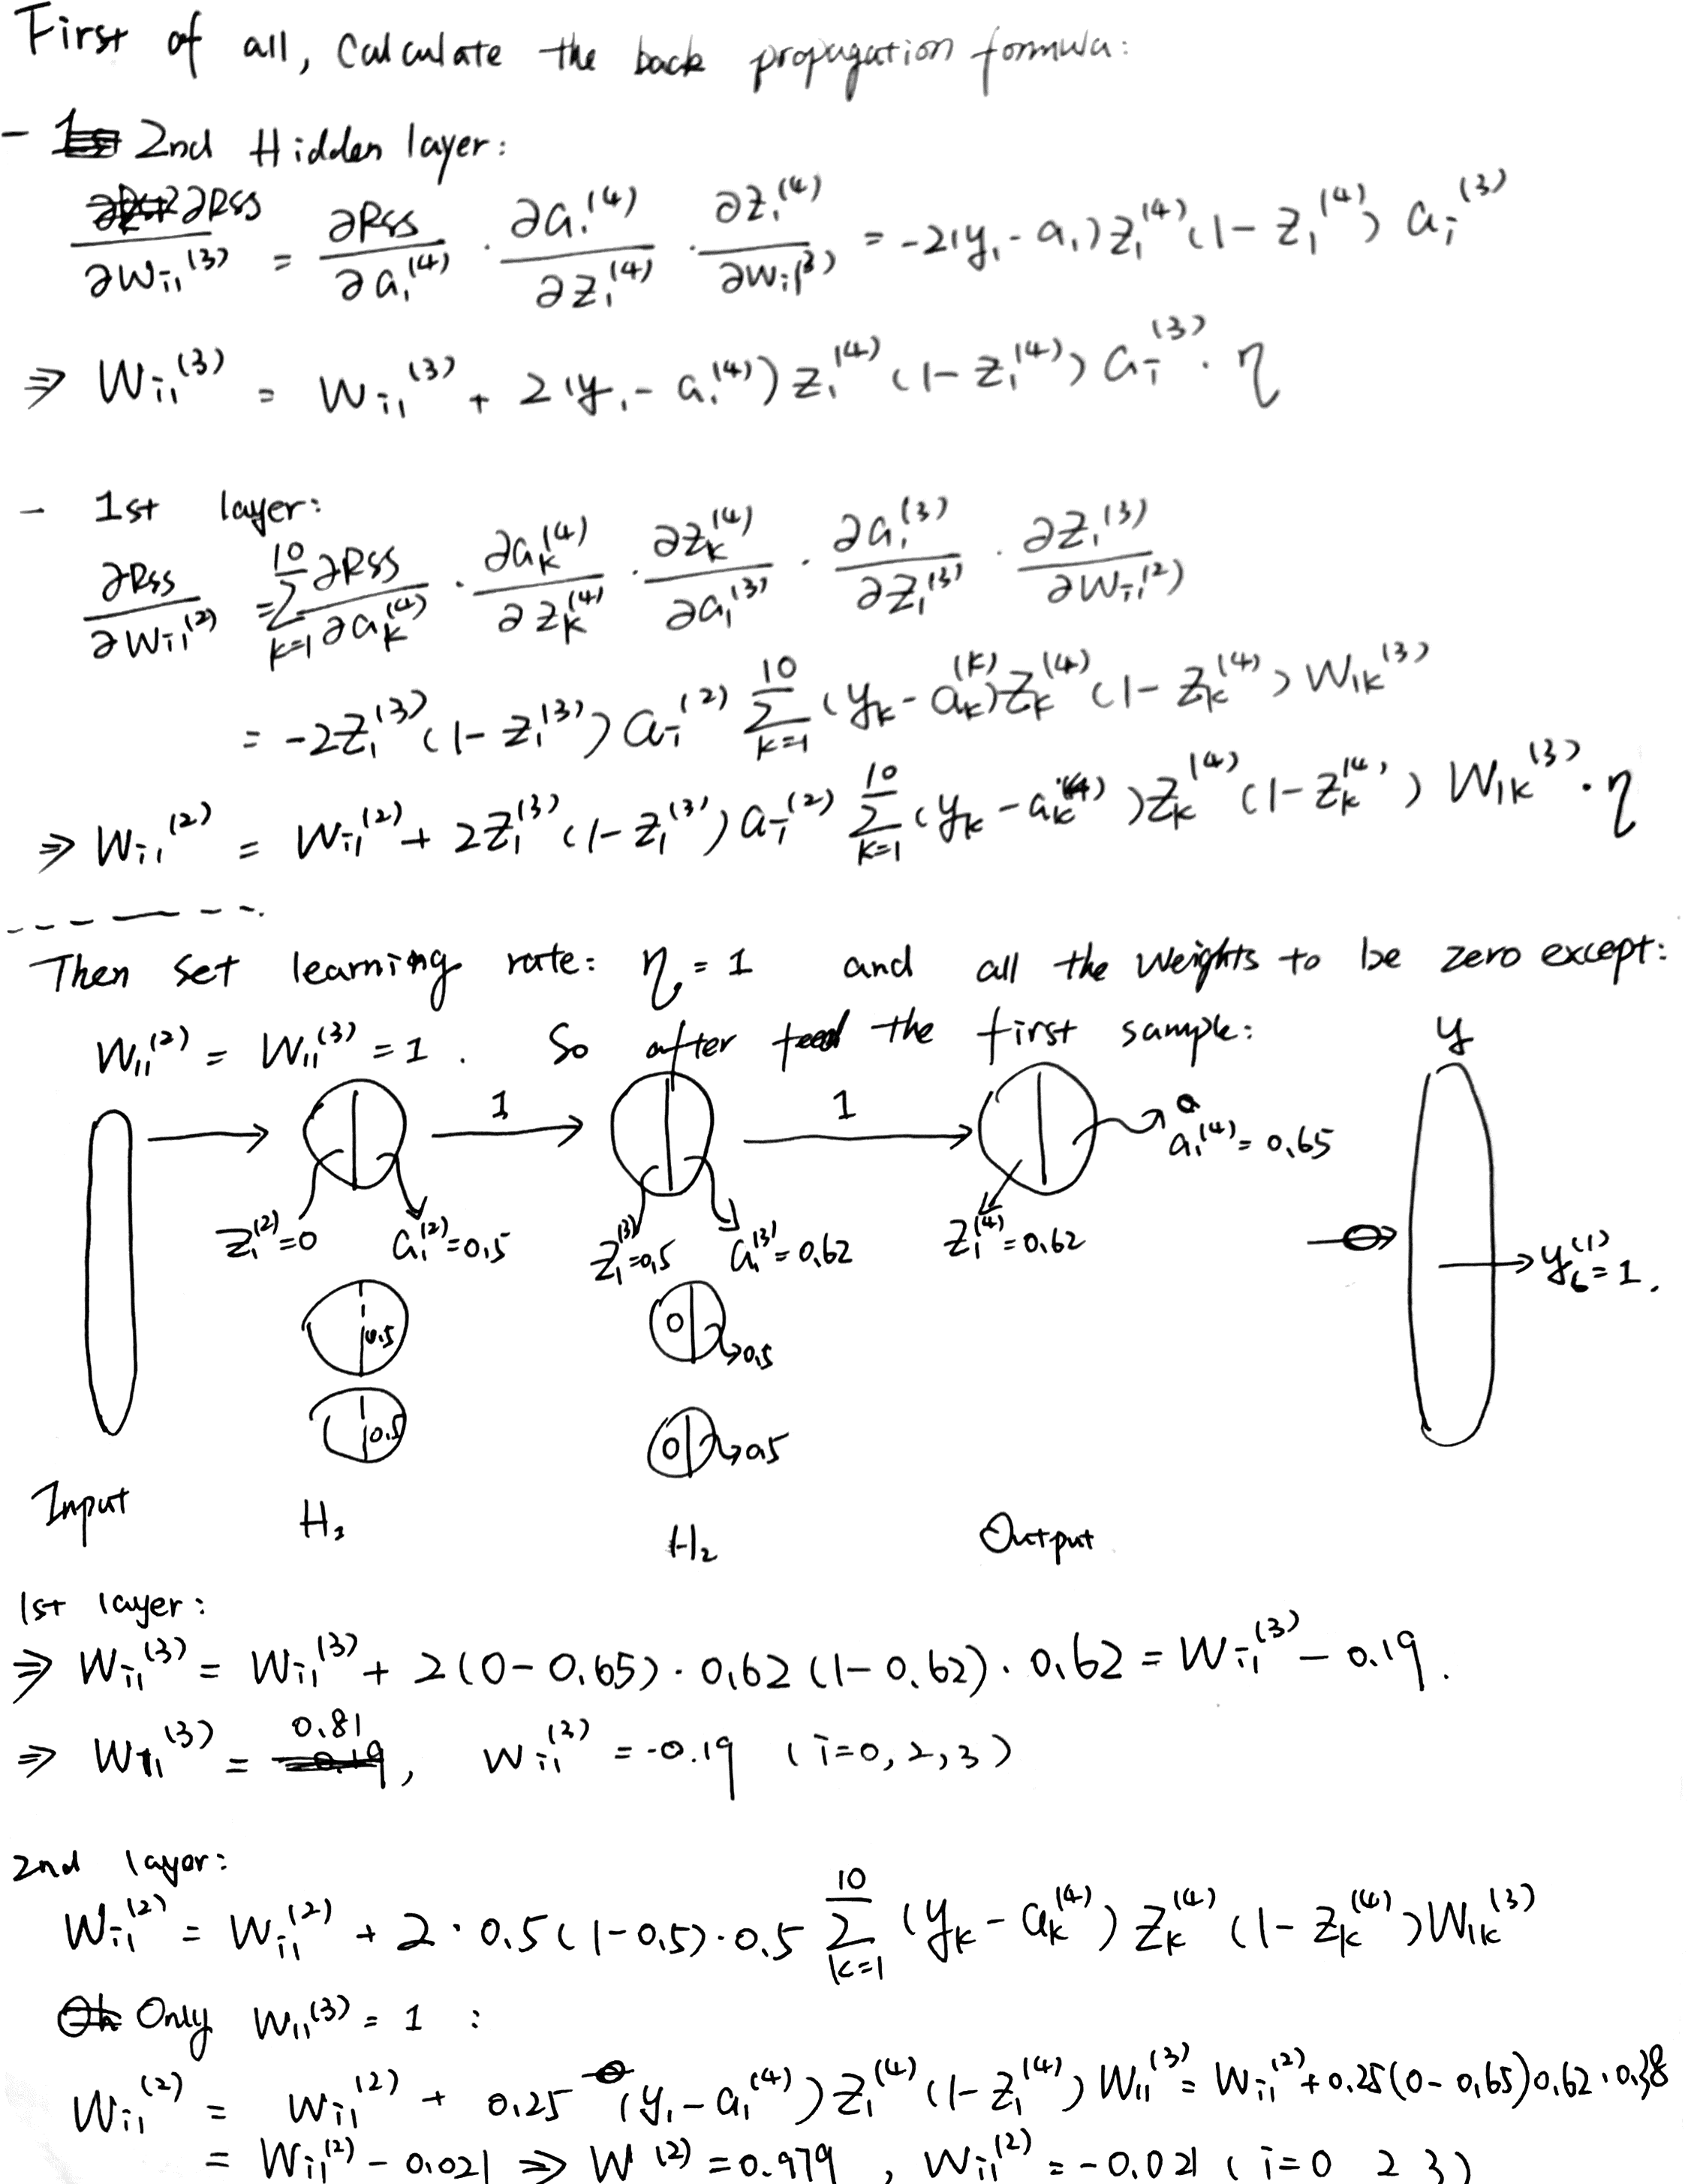 First of all, Calculate the back propagation formula:
- 2nd Hidden layer:
∂RSS/∂W_{i1}^{(3)} = ∂RSS/∂a_1^{(4)} · ∂a_1^{(4)}/∂z_1^{(4)} · ∂z_1^{(4)}/∂w_{i1}^{(3)} = -2(y_1 - a_1) z_1^{(4)} (1 - z_1^{(4)}) a_i^{(3)}
⇒ W_{i1}^{(3)} = W_{i1}^{(3)} + 2(y_1 - a_1^{(4)}) z_1^{(4)} (1 - z_1^{(4)}) a_i^{(3)} · η
- 1st layer:
∂RSS/∂W_{i1}^{(2)} = Σ_{k=1}^{10} ∂RSS/∂a_k^{(4)} · ∂a_k^{(4)}/∂z_k^{(4)} · ∂z_k^{(4)}/∂a_1^{(3)} · ∂a_1^{(3)}/∂z_1^{(3)} · ∂z_1^{(3)}/∂W_{i1}^{(2)}
= -2z_1^{(3)} (1 - z_1^{(3)}) a_i^{(2)} Σ_{k=1}^{10} (y_k - a_k^{(k)}) z_k^{(4)} (1 - z_k^{(4)}) W_{1k}^{(3)}
⇒ W_{i1}^{(2)} = W_{i1}^{(2)} + 2z_1^{(3)} (1 - z_1^{(3)}) a_i^{(2)} Σ_{k=1}^{10} (y_k - a_k^{(4)}) z_k^{(4)} (1 - z_k^{(4)}) W_{1k}^{(3)} · η
Then set learning rate: η = 1 and all the weights to be zero except:
W_{11}^{(2)} = W_{11}^{(3)} = 1 . So after feed the first sample:
y
1 1
a_1^{(4)} = 0.65
z_1^{(2)} = 0 a_1^{(2)} = 0.5 z_1^{(3)} = 0.5 a_1^{(3)} = 0.62 z_1^{(4)} = 0.62
y_6^{(1)} = 1.
0.5 0 0.5
0.5 0 0.5
Input H_1 H_2 Output
1st layer:
⇒ W_{i1}^{(3)} = W_{i1}^{(3)} + 2(0 - 0.65) · 0.62 (1 - 0.62) · 0.62 = W_{i1}^{(3)} - 0.19.
⇒ W_{11}^{(3)} = 0.81, W_{i1}^{(3)} = -0.19 (i=0, 2, 3)
2nd layer:
W_{i1}^{(2)} = W_{i1}^{(2)} + 2 · 0.5(1-0.5) · 0.5 Σ_{k=1}^{10} (y_k - a_k^{(4)}) z_k^{(4)} (1 - z_k^{(4)}) W_{1k}^{(3)}
Only W_{11}^{(3)} = 1 :
W_{i1}^{(2)} = W_{i1}^{(2)} + 0.25 (y_1 - a_1^{(4)}) z_1^{(4)} (1 - z_1^{(4)}) W_{11}^{(3)} = W_{i1}^{(2)} + 0.25(0 - 0.65) 0.62 · 0.38
= W_{i1}^{(2)} - 0.021 ⇒ W^{(2)} = 0.979 , W_{i1}^{(2)} = -0.021 (i=0 2 3)